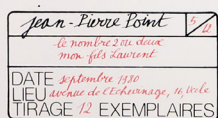 Jean-Pierre Point 5/12
le nombre 2 ou deux
mon fils Laurent
DATE septembre 1980
LIEU avenue de l'Echevinage, 16, Uccle
TIRAGE 12 EXEMPLAIRES